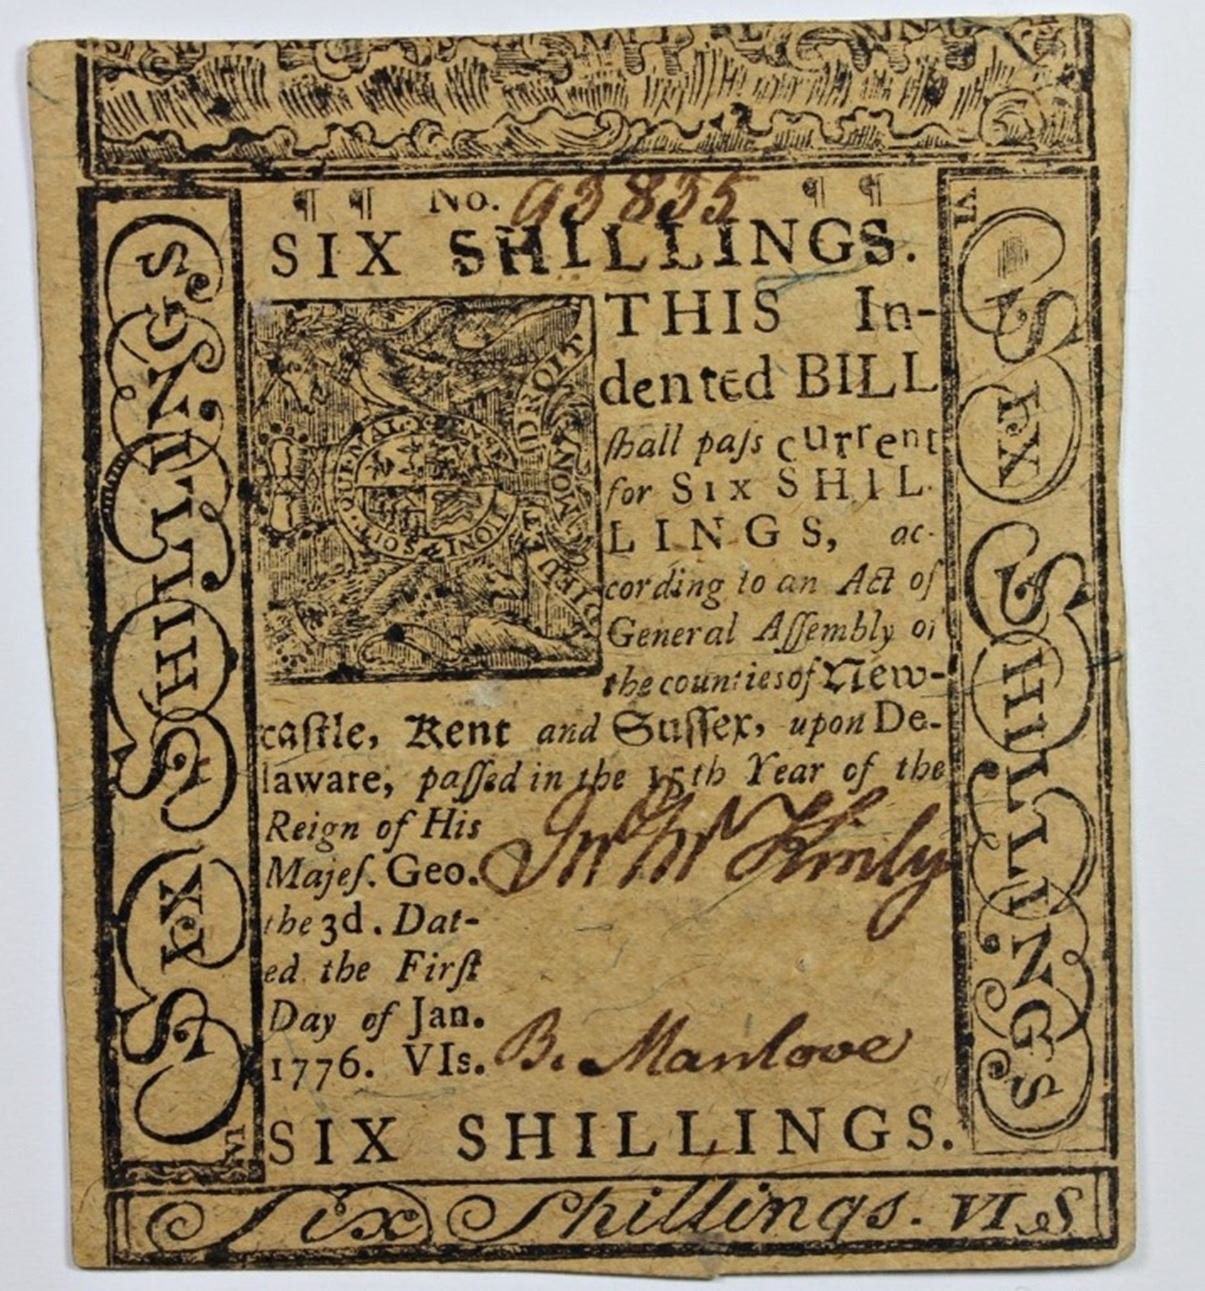 ¶ ¶ No. 93835 ¶ ¶
SIX SHILLINGS.
THIS In-
dented BILL
ſhall paſs current
for SIX SHIL-
LINGS, ac-
cording to an Act of
General Aſſembly of
the counties of New-
caſtle, Kent and Suſſex, upon De-
laware, paſſed in the 15th Year of the
Reign of His
Majeſ. Geo.
the 3d. Dat-
ed the Firſt
Day of Jan.
1776. VIs.
Jno Mc Kinly
B. Manlove
SIX SHILLINGS.
Six Shillings. VI.S
SIX SHILLINGS
VI
VI
SIX SHILLINGS
DROIT
QUI MAL Y PENSE
HONI SOIT
DIEU ET